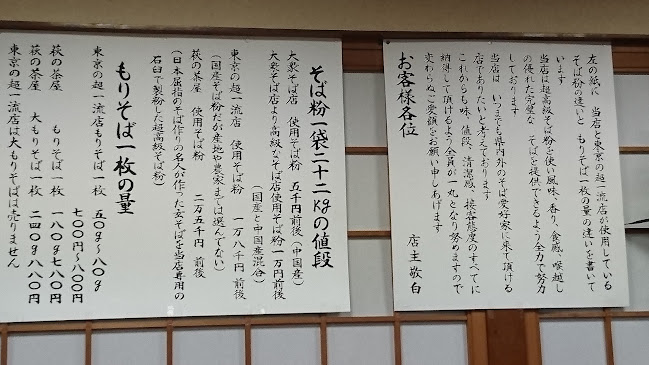 左の紙に 当店と東京の超一流店が使用している
そば粉の違いと もりそば一枚の量の違いを書いて
います
当店は超高級そば粉を使い風味、香り、食感、喉越し
の優した完璧な そばを提供できるよう全力で努力
しております
当店は いつまでも県内外のそば愛好家に来て頂ける
店でありたいと考えております
これからも味、値段、清潔感、接客態度のすべてに
納得して頂けるよう全員が一丸となり努めますので
変わらぬご愛顧をお願い申しあげます
お客様各位 店主敬白
そば粉一袋二十二kgの値段
大衆そば店 使用そば粉 五千円前後(中国産)
大衆そば店より高級なそば店使用そば粉一万円前後
(国産と中国産混合)
東京の超一流店 使用そば粉 一万八千円前後
(国産そば粉だが産地や農家までは選んでない)
萩の茶屋 使用そば粉 二万五千円 前後
(日本屈指のそば作りの名人が作った玄そばを当店専用の
石臼で製粉した超高級そば粉)
もりそば一枚の量
東京の超一流店もりそば一枚 五〇g〜八〇g
七〇〇円〜八〇〇円
萩の茶屋 もりそば一枚 一八〇g七八〇円
萩の茶屋 大もりそば一枚 二四〇g八八〇円
東京の超一流店は大もりそばは売りません